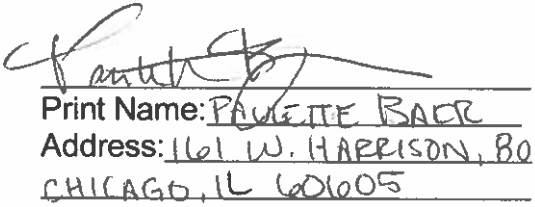 Print Name: PAULETTE BAER
Address: 161 W. HARRISON, 80
CHICAGO, IL 60605